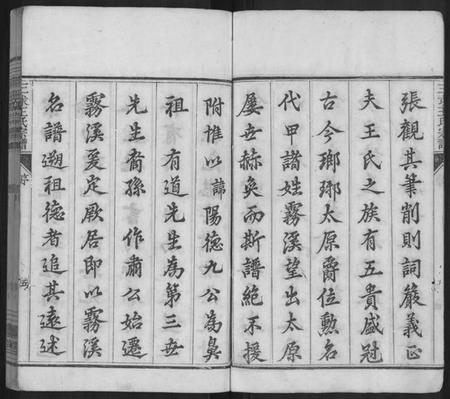 張觀其筆削則詞嚴義正
夫王氏之族有五貴盛冠
古今瑯琊太原爵位勲名
代甲諸姓霧溪望出太原
屢世赫奕而斯譜絕不援
附惟以諱陽德九公為鼻
祖 有道先生為第三世
先生裔孫 作肅公始遷
霧溪爰定厥居即以霧溪
名譜遡祖德者追其遠述
王氏宗譜
序